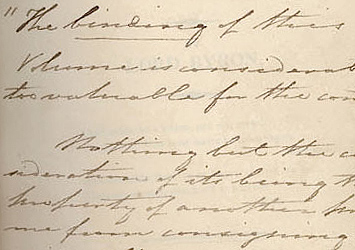 "The binding of this
Volume is considerab
too valuable for the con
Nothing but the c
sideration of its being t
property of another,
me from consigning